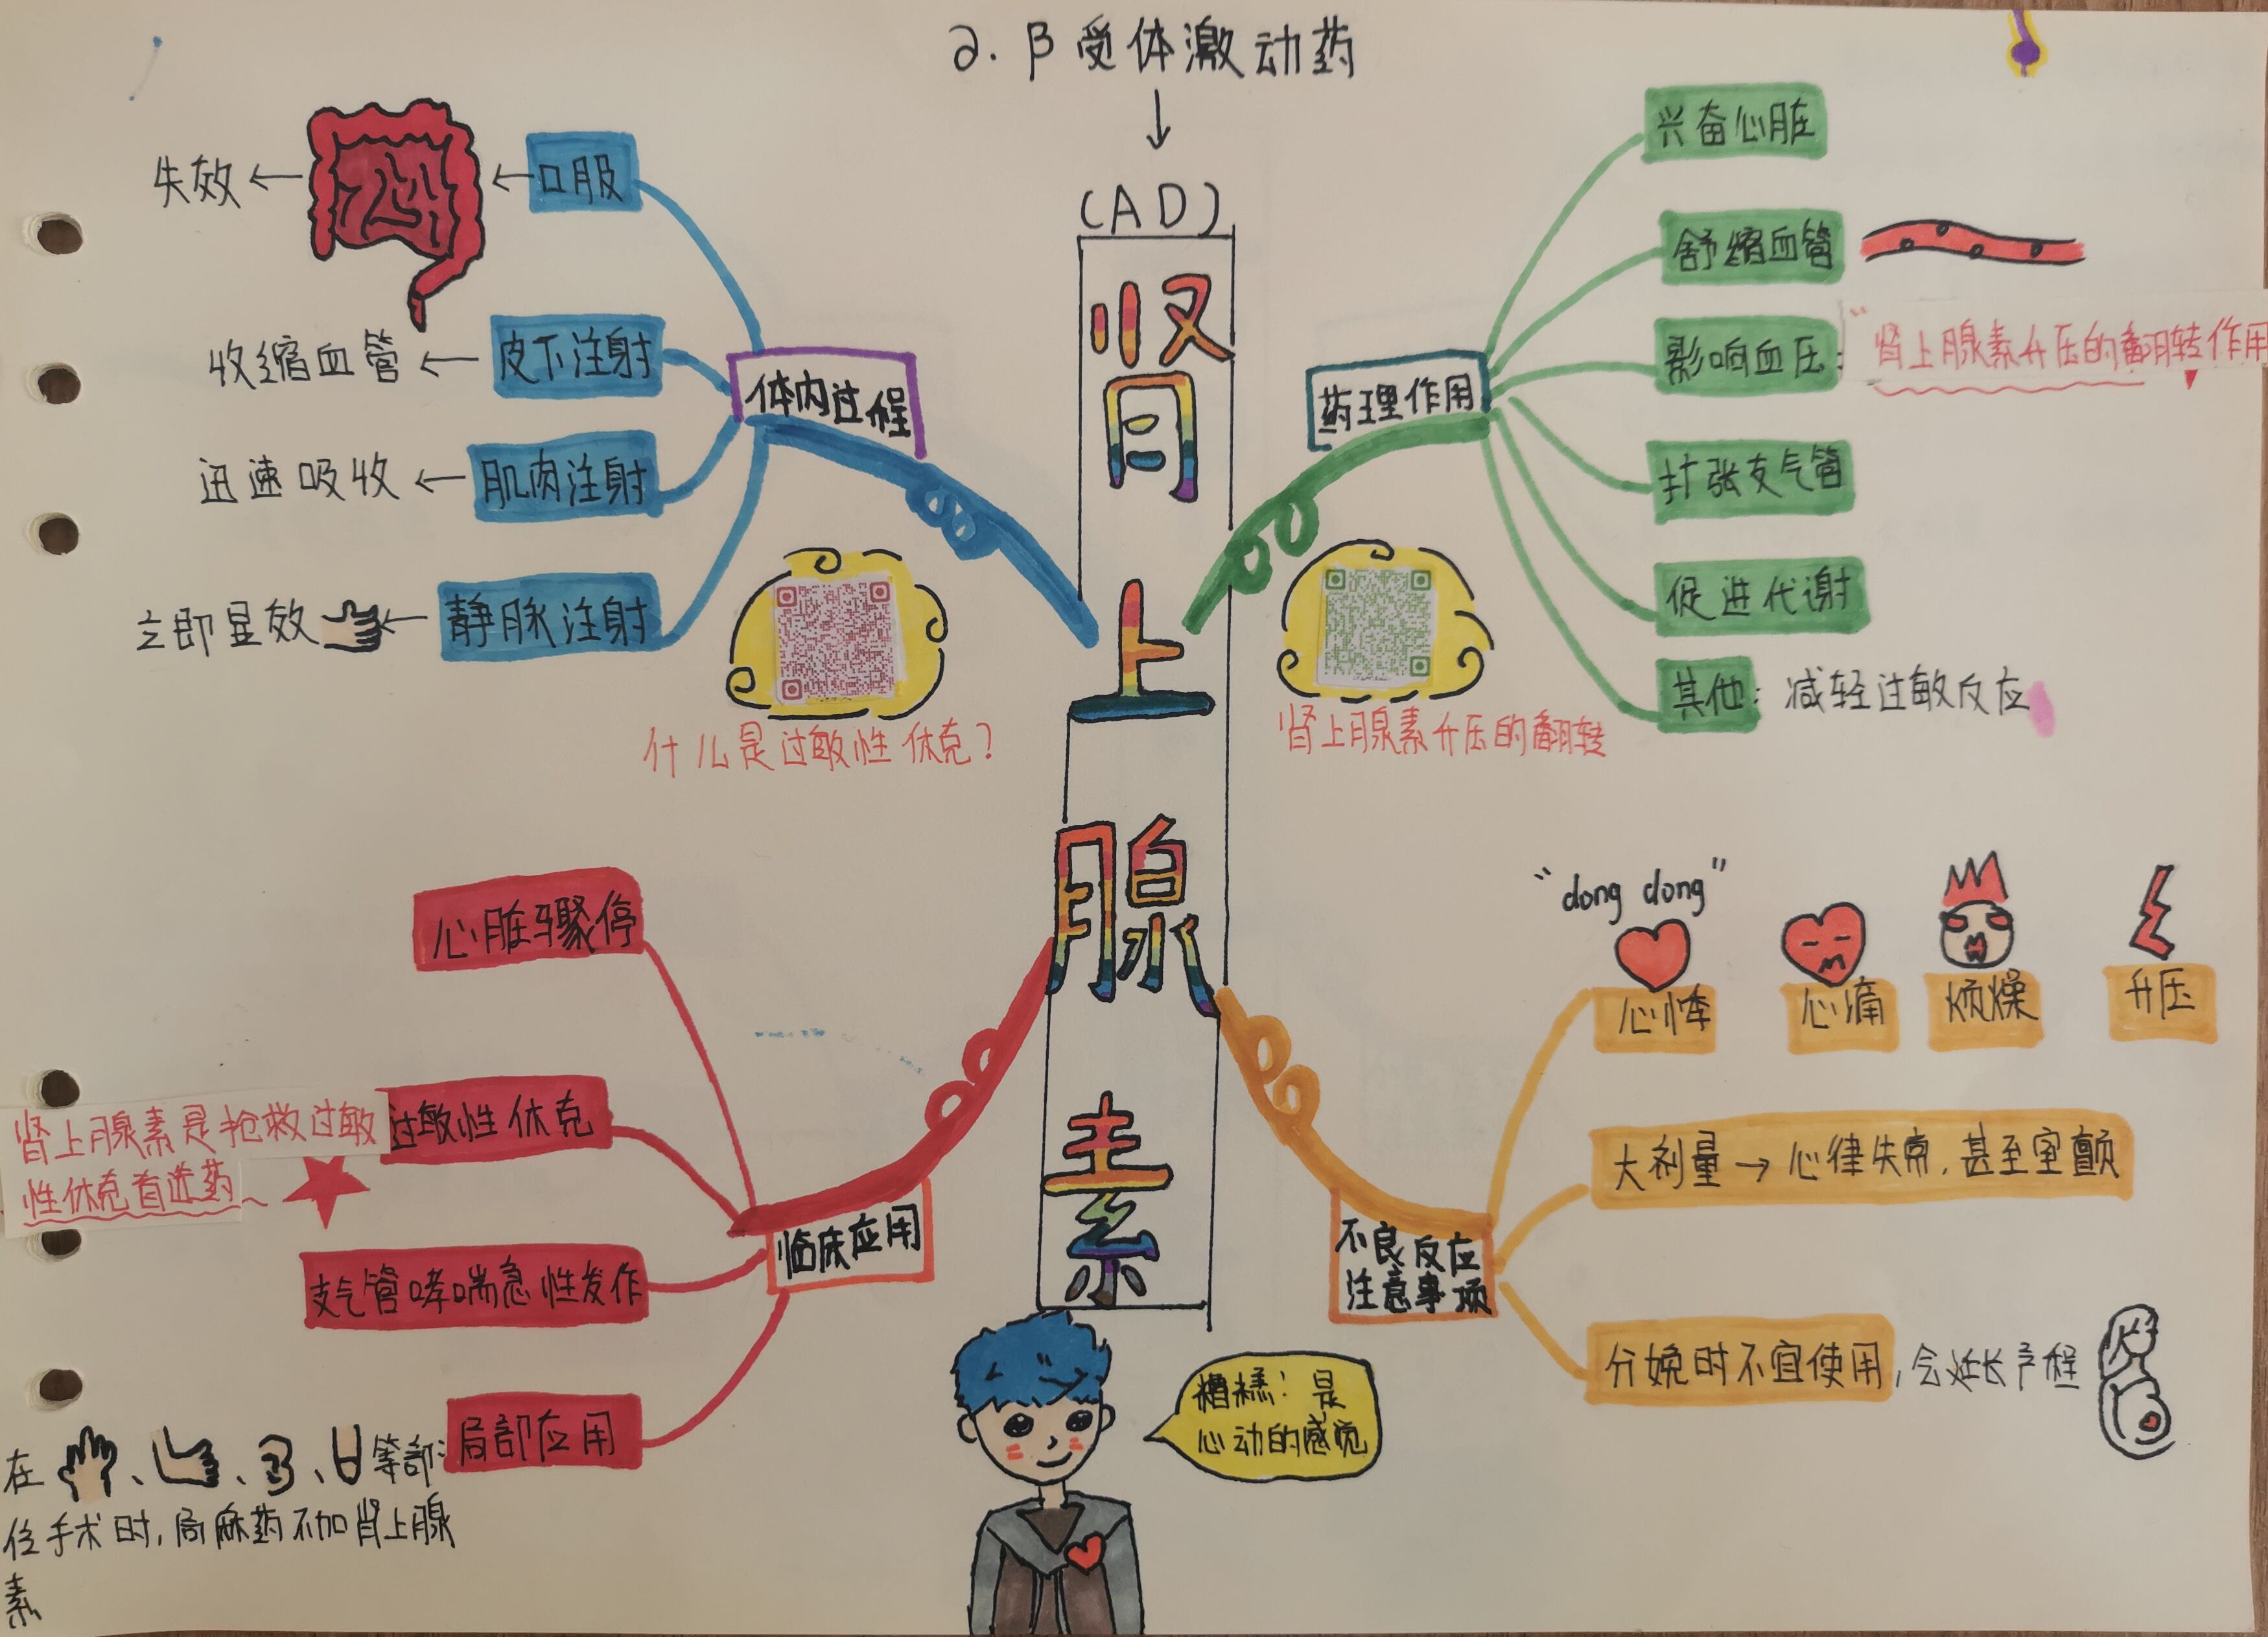 ∂.β受体激动药
(AD)
肾上腺素
体内过程
口服
失效
皮下注射
收缩血管
肌肉注射
迅速吸收
静脉注射
立即显效
什么是过敏性休克?
药理作用
兴奋心脏
舒缩血管
影响血压:
“肾上腺素升压的翻转作用
扩张支气管
促进代谢
其他: 减轻过敏反应
肾上腺素升压的翻转
临床应用
心脏骤停
过敏性休克
肾上腺素是抢救过敏
性休克首选药
支气管哮喘急性发作
局部应用
在 、 、 、 等部
位手术时,局麻药不加肾上腺
素
不良反应
注意事项
“dong dong”
心悸
心痛
烦燥
升压
大剂量→心律失常,甚至室颤
分娩时不宜使用,会延长产程
糟糕!是
心动的感觉